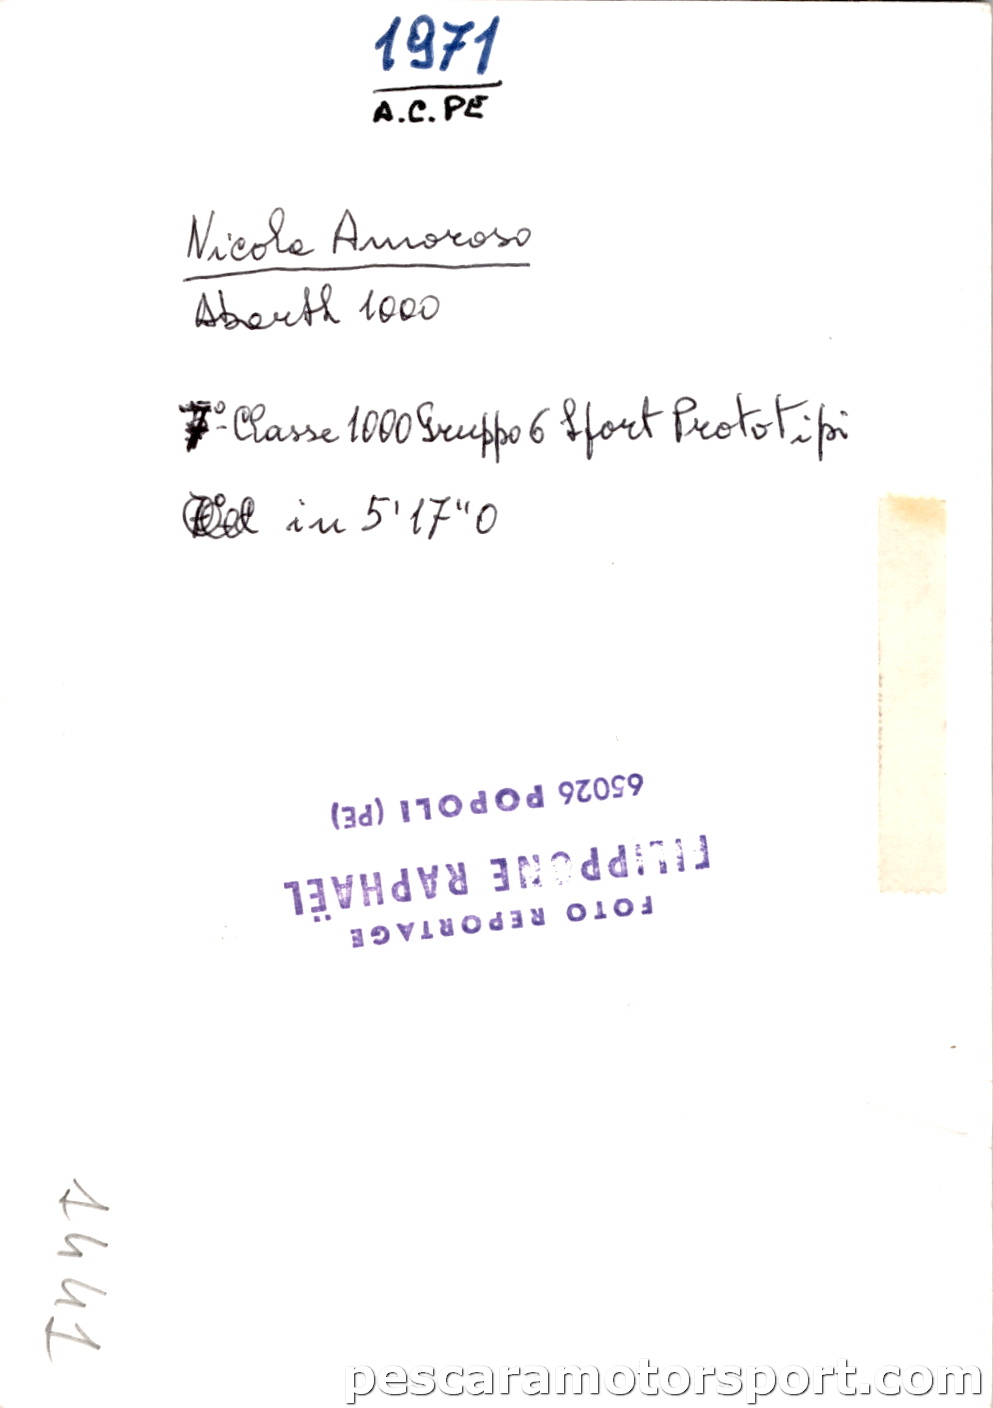 1971
A.C.PE
Nicola Amoroso
Abarth 1000
7°- Classe 1000 Gruppo 6 Sport Prototipi
in 5'17"0
65026 POPOLI (PE)
FILIPPONE RAPHAËL
FOTO REPORTAGE
1441
pescaramotorsport.com